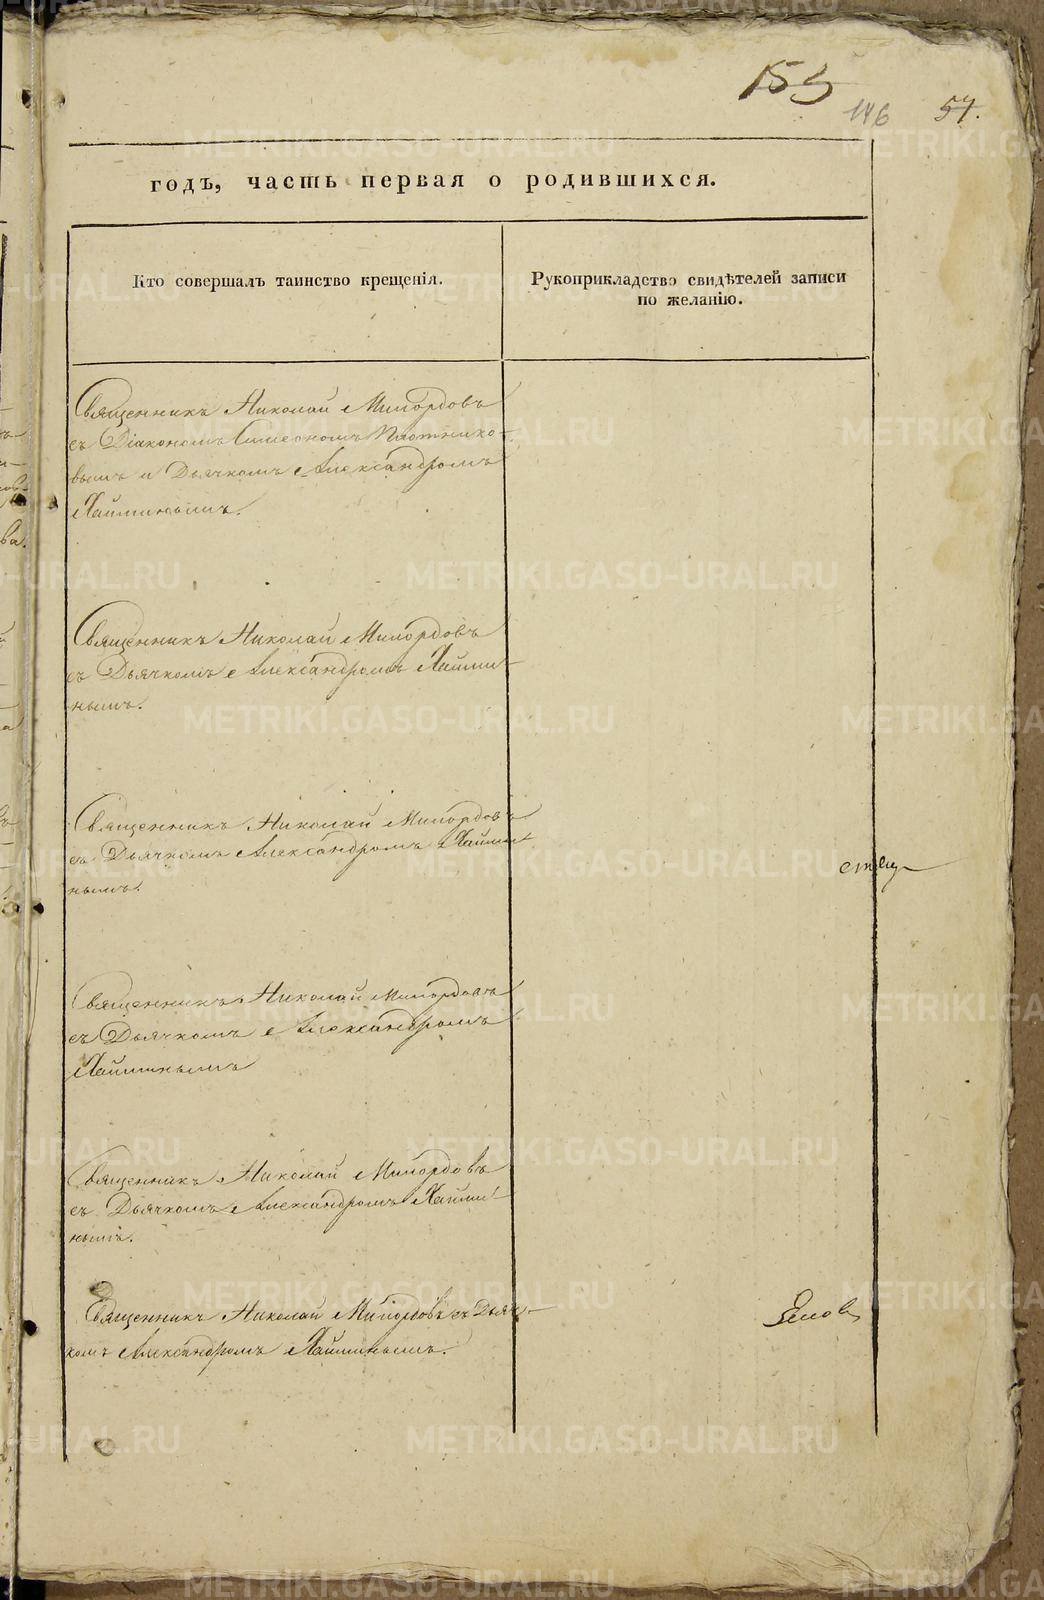 155
146
57.
годъ, часть первая о родившихся.
Кто совершалъ таинство крещенія.
Рукоприкладство свидѣтелей записи
по желанію.
Священникъ Николай Милордовъ
съ Діакономъ Симеономъ Плотнико-
вымъ и Дьячкомъ Александромъ
Хайминымъ.
Священникъ Николай Милордовъ
съ Дьячкомъ Александромъ Хайми-
нымъ.
Священникъ Николай Милордовъ
съ Дьячкомъ Александромъ Хайми-
нымъ.
Священникъ Николай Милордовъ
съ Дьячкомъ Александромъ
Хайминымъ
Священникъ Николай Милордовъ
съ Дьячкомъ Александромъ Хайми-
нымъ.
Священникъ Николай Милордовъ съ Дьяч-
комъ Александромъ Хайминымъ.
METRIKI.GASO-URAL.RU